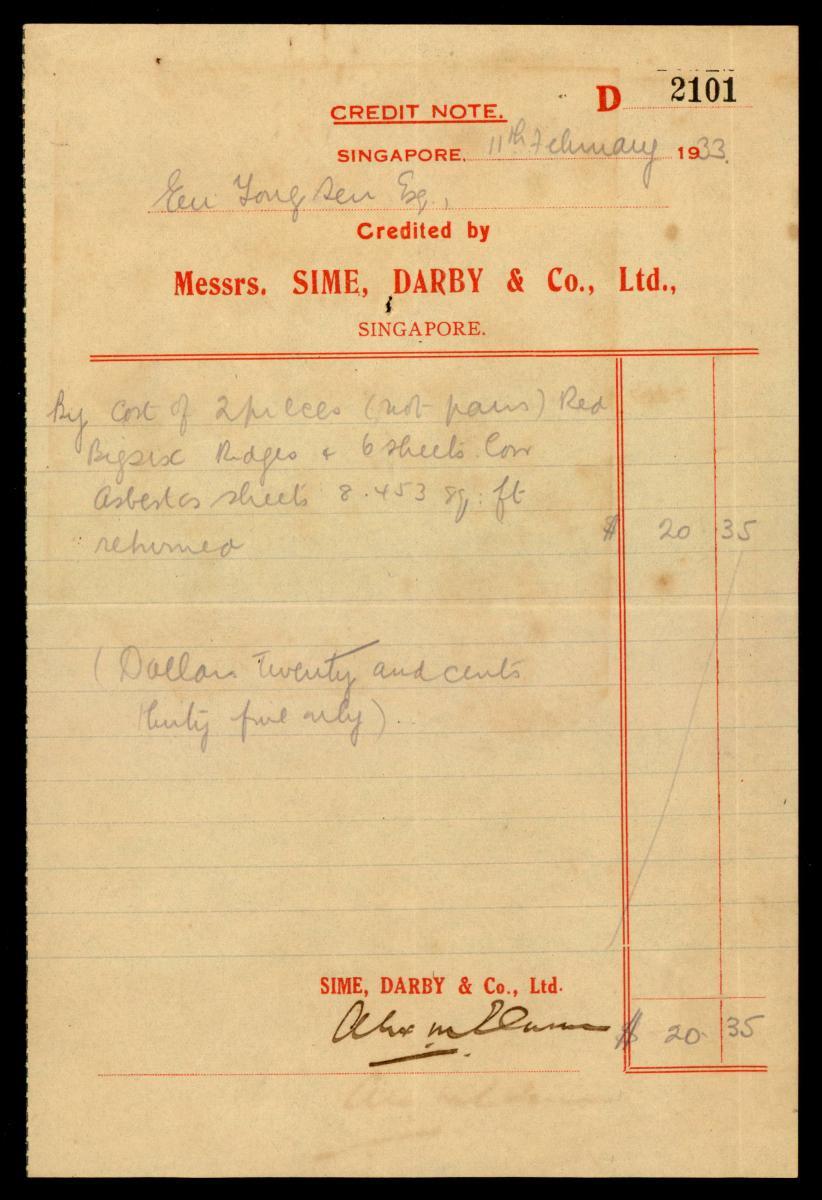 D 2101
CREDIT NOTE.
SINGAPORE, 11th February 1933.
Eu Tong Sen Esq.,
Credited by
Messrs. SIME, DARBY & Co., Ltd.,
SINGAPORE.
By Cost of 2 pieces (not pairs) Red
Bigsix Ridges & 6 sheets Corr
Asbestos sheets 8.453 sq: ft
returned $ 20 35
(Dollars Twenty and cents
thirty five only).
SIME, DARBY & Co., Ltd.
Alex $ 20 35